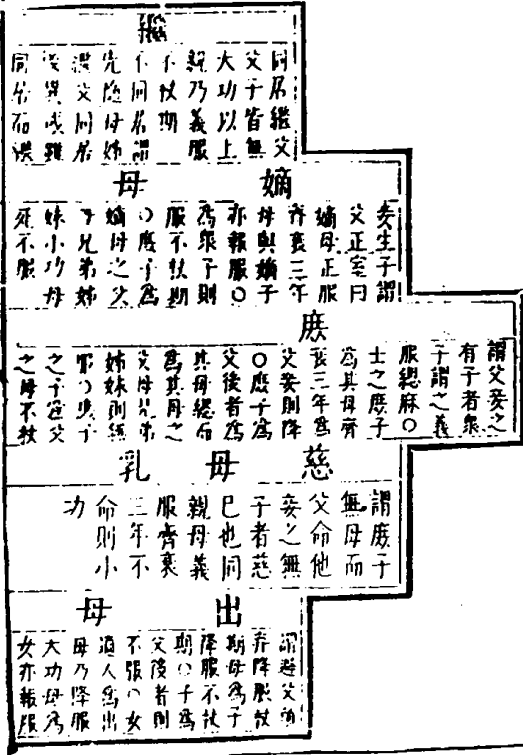 繼
同居繼父
父子皆無
大功以上
親乃義服
不杖期
不同居謂
先隨母
繼父同居
後異或雖
同居而
嫡母
妾生子謂
父正室曰
嫡母正服
齊衰三年
母與嫡子
亦報服○
為眾子則
服不杖期
○庶子為
嫡母之父
母兄弟姊
妹小功母
死不服
庶
謂父妾之
有子者眾
子謂之義
服緦麻○
士之庶子
為其母齊
衰三年為
父妾則降
○庶子為
父後者為
其母緦而
為其母之
父母兄弟
姊妹則無
服○庶子
之子為父
之母不杖
慈母乳
謂庶子
無母而
父命他
妾之無
子者慈
己也同
親母義
服齊衰
三年不
命則小
功
出母
謂父
齊降服杖
期母為子
降服不杖
期○子為
父後者則
不服○女
適人為出
母乃降服
大功母為
女亦報服